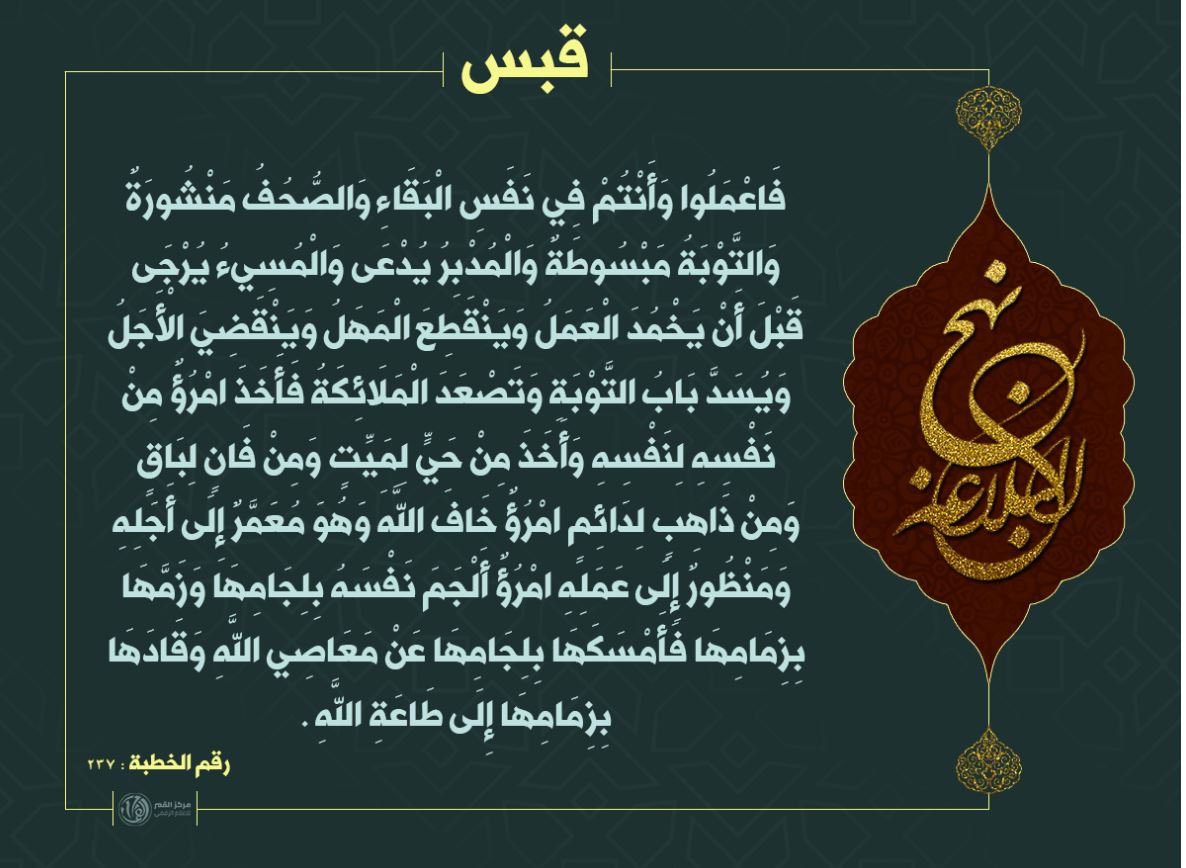 قبس
فَاعْمَلُوا وَأَنْتُمْ فِي نَفَسِ الْبَقَاءِ وَالصُّحُفُ مَنْشُورَةٌ
وَالتَّوْبَةُ مَبْسُوطَةٌ وَالْمُدْبِرُ يُدْعَى وَالْمُسِيءُ يُرْجَى
قَبْلَ أَنْ يَخْمُدَ الْعمَلُ وَيَنْقَطِع الْمَهلُ وَيَنْقَضِيَ الْأَجلُ
وَيُسَدَّ بَابُ التَّوْبَةِ وَتَصْعَدَ الْمَلَائِكَةُ فَأَخَذَ امْرُؤٌ مِنْ
نَفْسِهِ لِنَفْسِهِ وَأَخَذَ مِنْ حَيٍّ لِمَيِّتٍ وَمِنْ فَانٍ لِبَاقٍ
وَمِنْ ذَاهِبٍ لِدَائِمٍ امْرُؤٌ خَافَ اللَّهَ وَهُوَ مُعَمَّرٌ إِلَى أَجَلِهِ
وَمَنْظُورٌ إِلَى عَمَلِهِ امْرُؤٌ أَلْجَمَ نَفْسَهُ بِلِجَامِهَا وَزَمَّهَا
بِزِمَامِهَا فَأَمْسَكَهَا بِلِجَامِهَا عَنْ مَعَاصِي اللَّهِ وَقَادَهَا
بِزِمَامِهَا إِلَى طَاعَةِ اللَّهِ .
نهج
البلاغة
رقم الخطبة : ٢٣٧
مركز القمر
للاعلام الرقمي